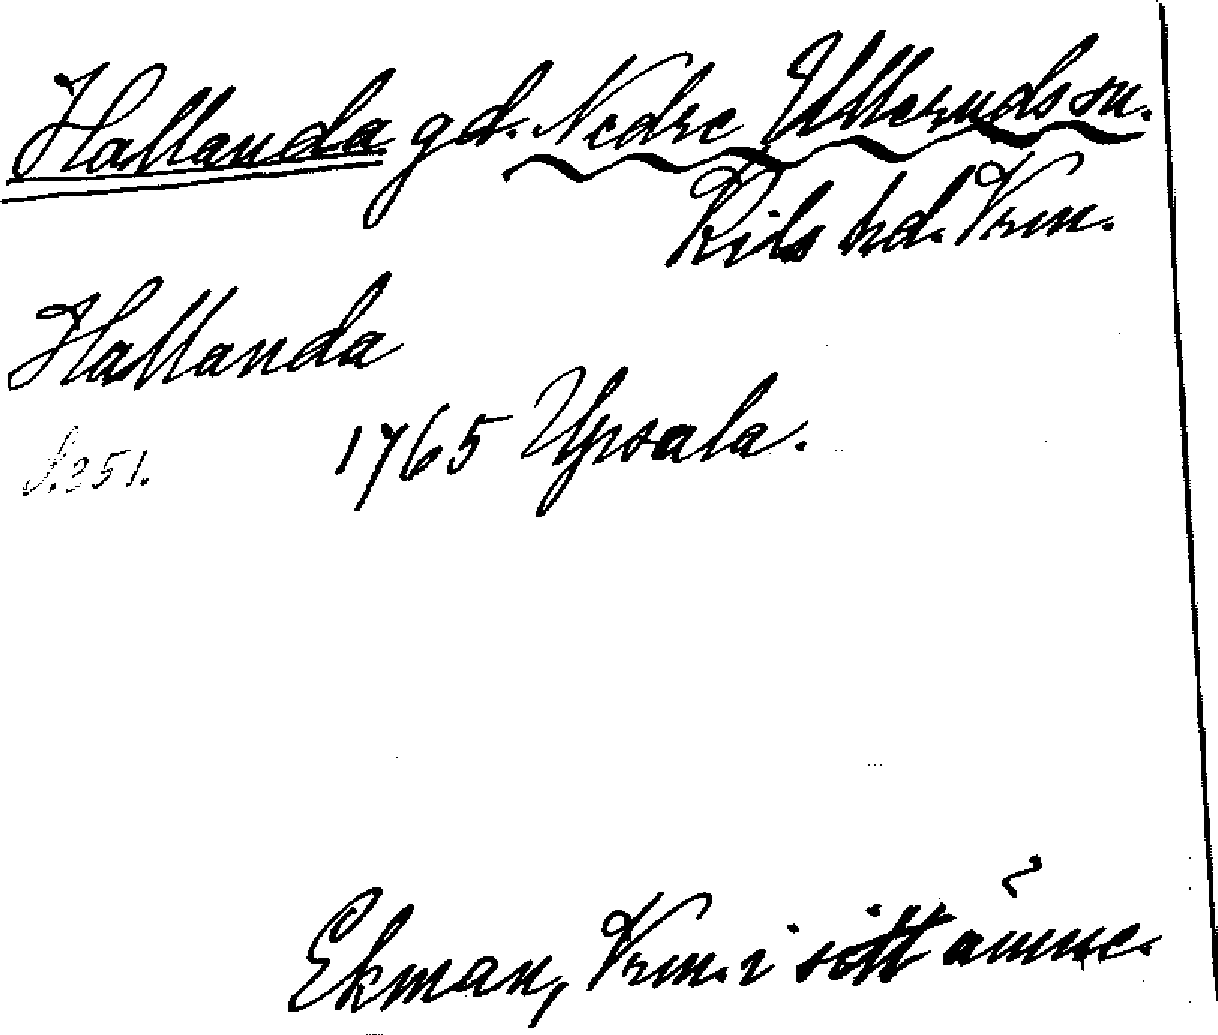 Hallanda gd. Nedre Ulleruds sn.
Kils hd. Vrm.
Hallanda
1765 Upsala.
S. 251.
Ekman, Vrm. i sitt ämne.